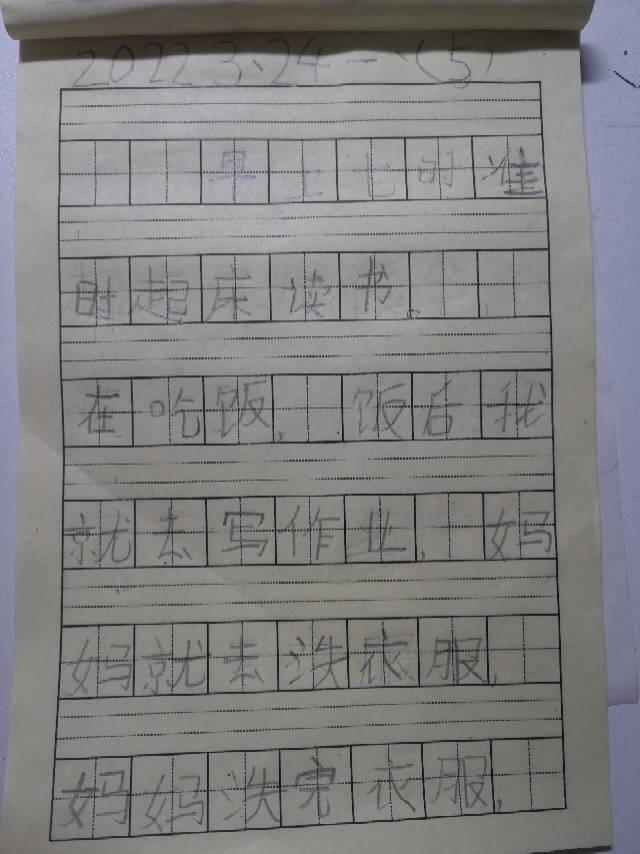 2022.3.24 一、(5)
早上七时准
时起床读书。
在吃饭, 饭后我
就去写作业, 妈
妈就去洗衣服,
妈妈洗完衣服,